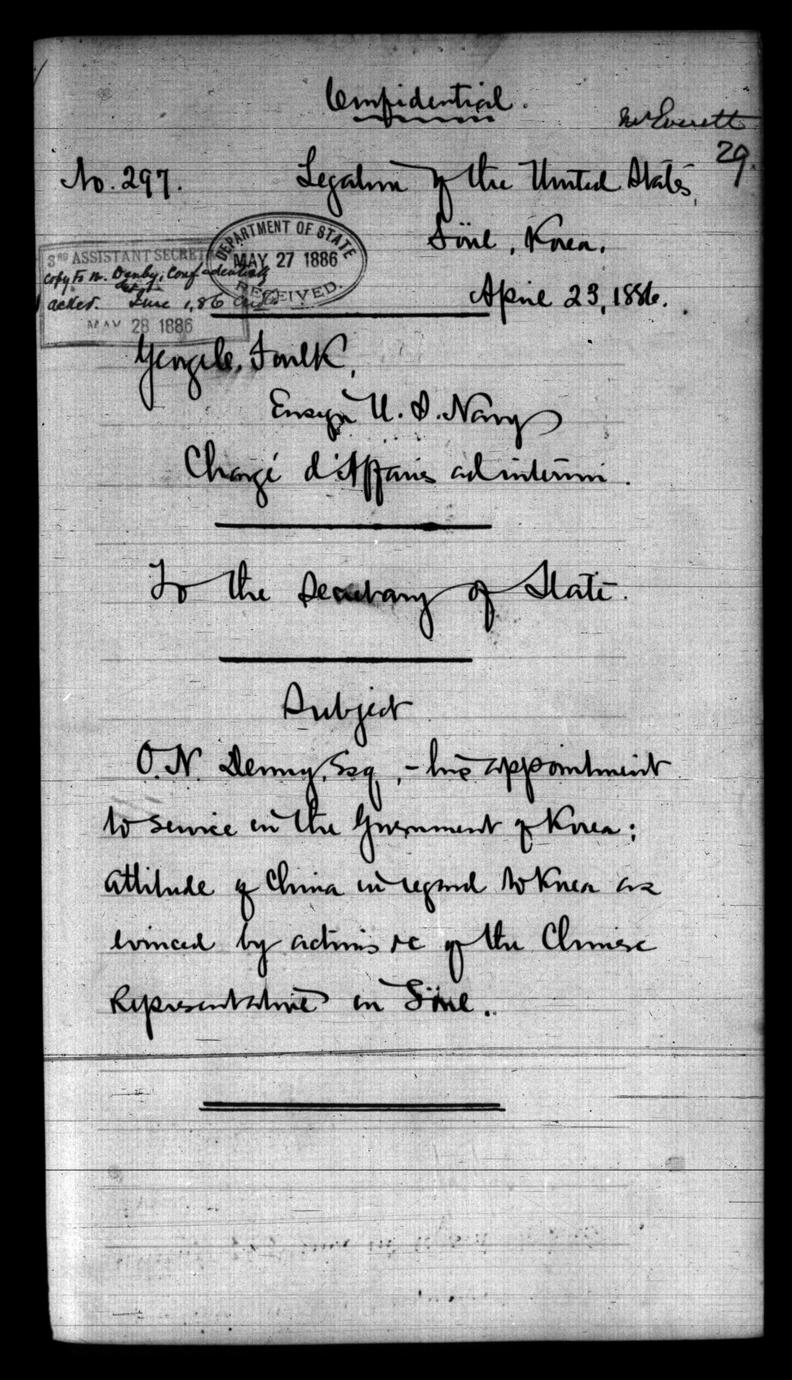 Confidential.
Mr Everett
29.
No. 297.
Legation of the United States,
Söul, Korea.
April 23, 1886.
DEPARTMENT OF STATE
MAY 27 1886
RECEIVED.
3RD ASSISTANT SECRETARY
copy to Mr. Denby, Confidential
acked. June 1, 86
MAY 28 1886
George C. Foulk,
Ensign U. S. Navy
Chargé d'Affaires ad interim.
To the Secretary of State.
Subject
O. N. Denny, Esq, - his appointment
to service in the Government of Korea;
attitude of China in regard to Korea as
evinced by actions &c of the Chinese
Representative in Söul.